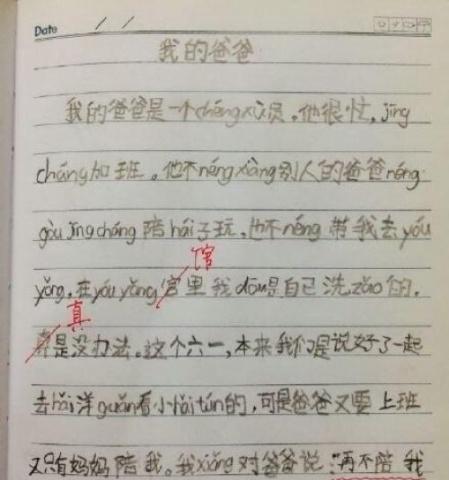 Date / /
我的爸爸
我的爸爸是一个chéngxù员。他很忙,jīng
cháng加班。他不néngxiàng别人的爸爸néng
gòu jīngcháng 陪hái子玩,也不néng 带我去yóu
yǒng,在yóuyǒng官里我dōu是自己洗zǎo的。
馆
真
是没办法。这个六一,本来我们是说好了一起
去hǎi洋guǎn看小hǎitún的,可是爸爸又要上班
又只有妈妈陪我。我xiǎng对爸爸说:“再不陪我